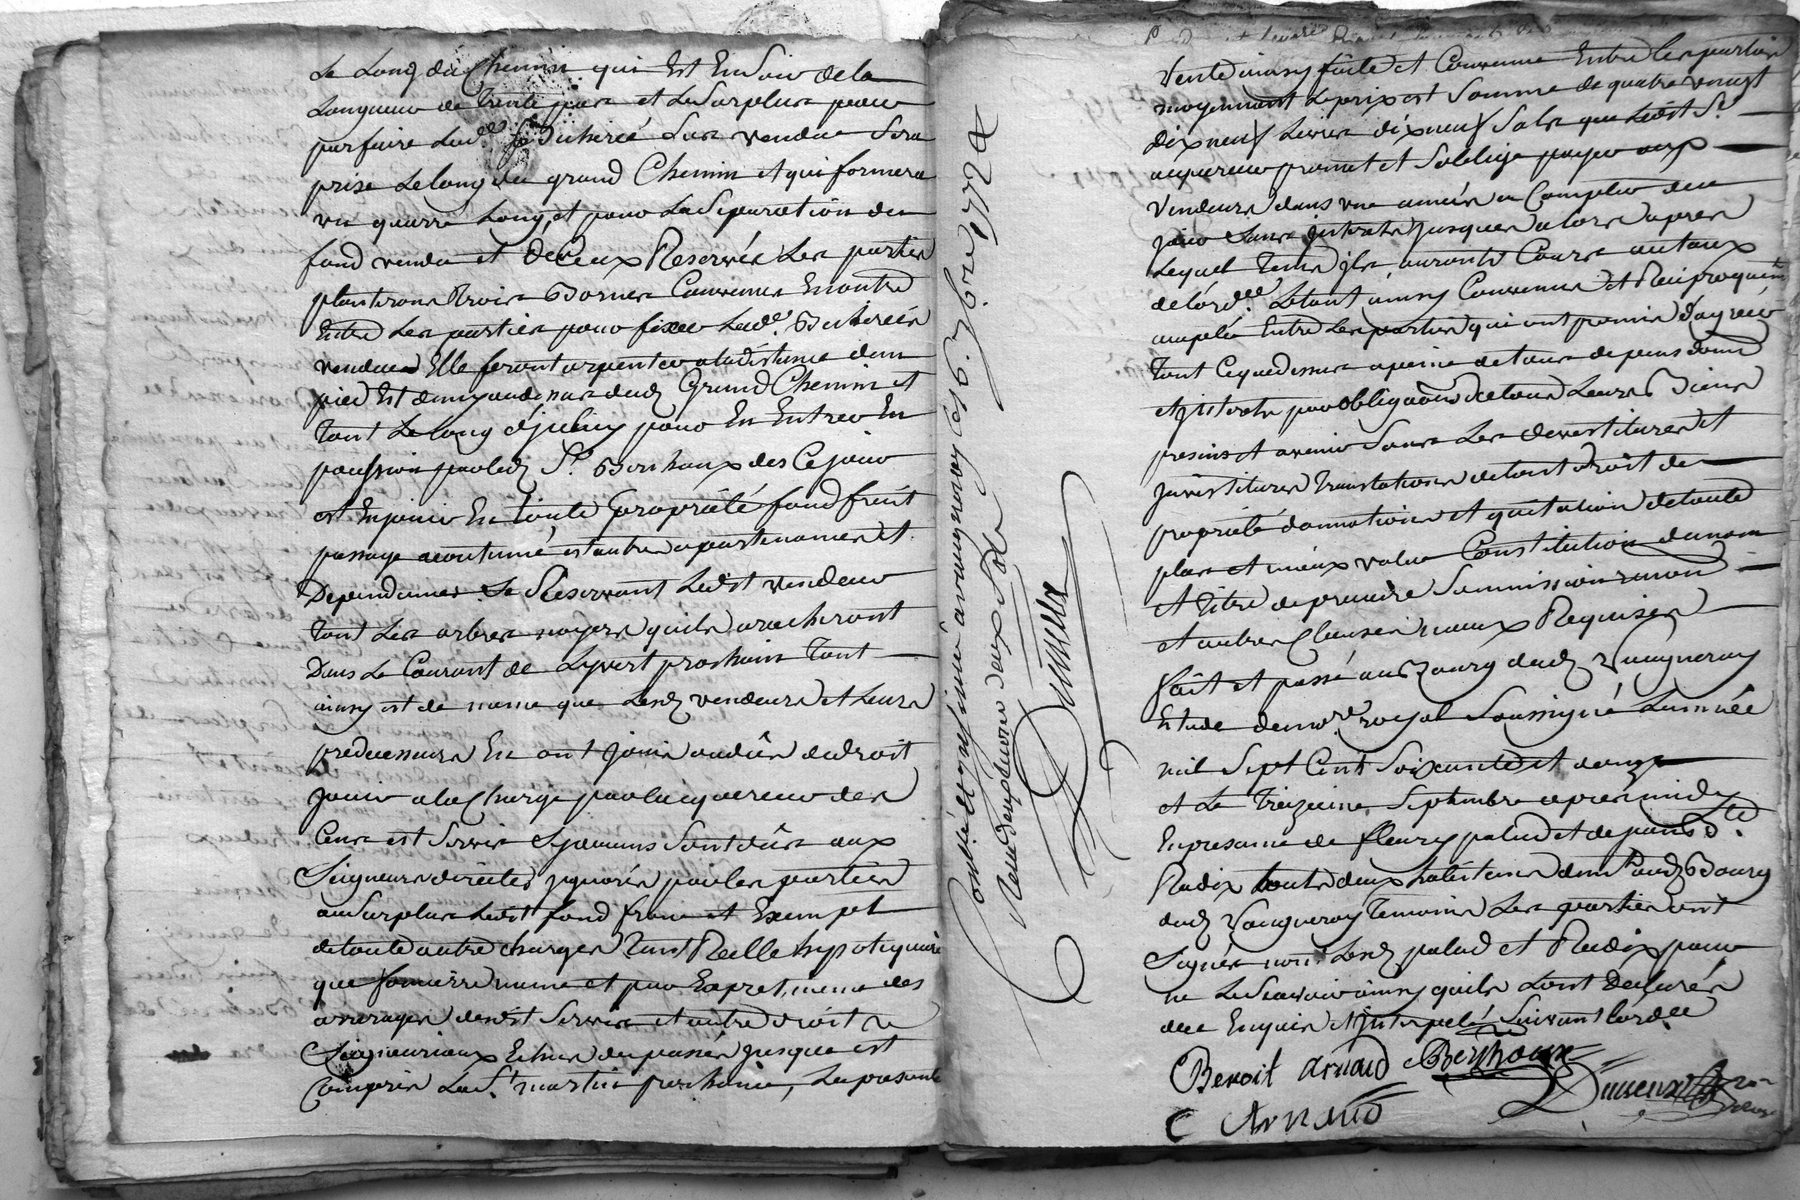 Le Long du Chemin qui Est En Soir de la
Longueur de Trente pas et Le Surplus pour
parfaire Lad.e Bicherée Sera vendue Sera
prise Le long du grand Chemin et qui formera
un quarré Long, et pour La Separation du
fond vendu et de Ceux Reservés Les parties
planteront trois Bornes Convenu En outre
Entre Les parties pour fixer Lad.e Bicherée
vendue Elle feront arpenter a la distance d'un
pied Et demy au dessus dud. Grand Chemin et
Tout Le long d'jceluy pour En Entrer En
possession par led. S.r Berthoux des Ce jour
et En jouir En toute propriété fond fruit
passage acoutumé et autres apartenances et
Dependances Se Reservant Ledit vendeur
Tout Les arbres noyers quils aracheront
Dans Le Courant de Lyvert prochain Tout
ainsy est de meme que Lesd. vendeurs et Leurs
predecesseurs En ont joui audû ou droit
jouir a la Charge par lacquereur des
Cens est Servis Sy aucuns Sont dûs aux
Seigneurs directes jgnorés par les parties
au Surplus Ledit fond franc et Exempt
de toute autre charges Tant Reelle hypotequaire
que fonciere meme et par Exprès, meme des
arrerages desdit Servis et autre droit
Seigneuriaux Echus du passés jusque est
Compris La S.t martin prochaine, La presente
Controllé et jnsinué a vaugneray Ce 16. 7bre 1772
Reçu deux Livres deux Sols
Vente ainsy faite et Convenue Entre les parties
moyennant Le prix et Somme de quatre vingt
Dix neuf Livres dix neuf Sols que Ledit S.r
acquereur promet et Soblige payer aux
Vendeurs dans une année a Compter de ce
jour Sans jnterets jusques a lors apres
Lequel Tems jls auronts Cours au taux
de lord.ce Letout ainsy Convenu et Reciproquem.t
accepté Entre Les parties qui ont promis d'agréer
Tout Ce que dessus a peine de tous depens dom.
et jnterets par obligaõn de tous Leurs Biens
presents et avenir Sous Les devestitures et
jnvestitures Translations de tout droit de
propriété donnations et quittation de toute
plus et mieux value Constitution de nom
et Titre de precaire Soummission renon.
et autres Clauses aux Requises
fait et passé au Bourg dud. Vaugneray
Etude de no.re royal Soussigné Lannée
mil Sept Cent Soixante et douze
et Le Treizieme Septembre apres midy
En presence de fleury palud et de
Radix touts deux habitans aud. Bourg
dud. Vaugneray Temoins Les parties ont
Signés non Lesd. palud et Radix pour
ne Le Scavoir ainsy quils L'ont Declarés
de ce Enquis et jnterpelés Suivant lord.ce
Benoit Arnaud Berthoux
C Arnaud